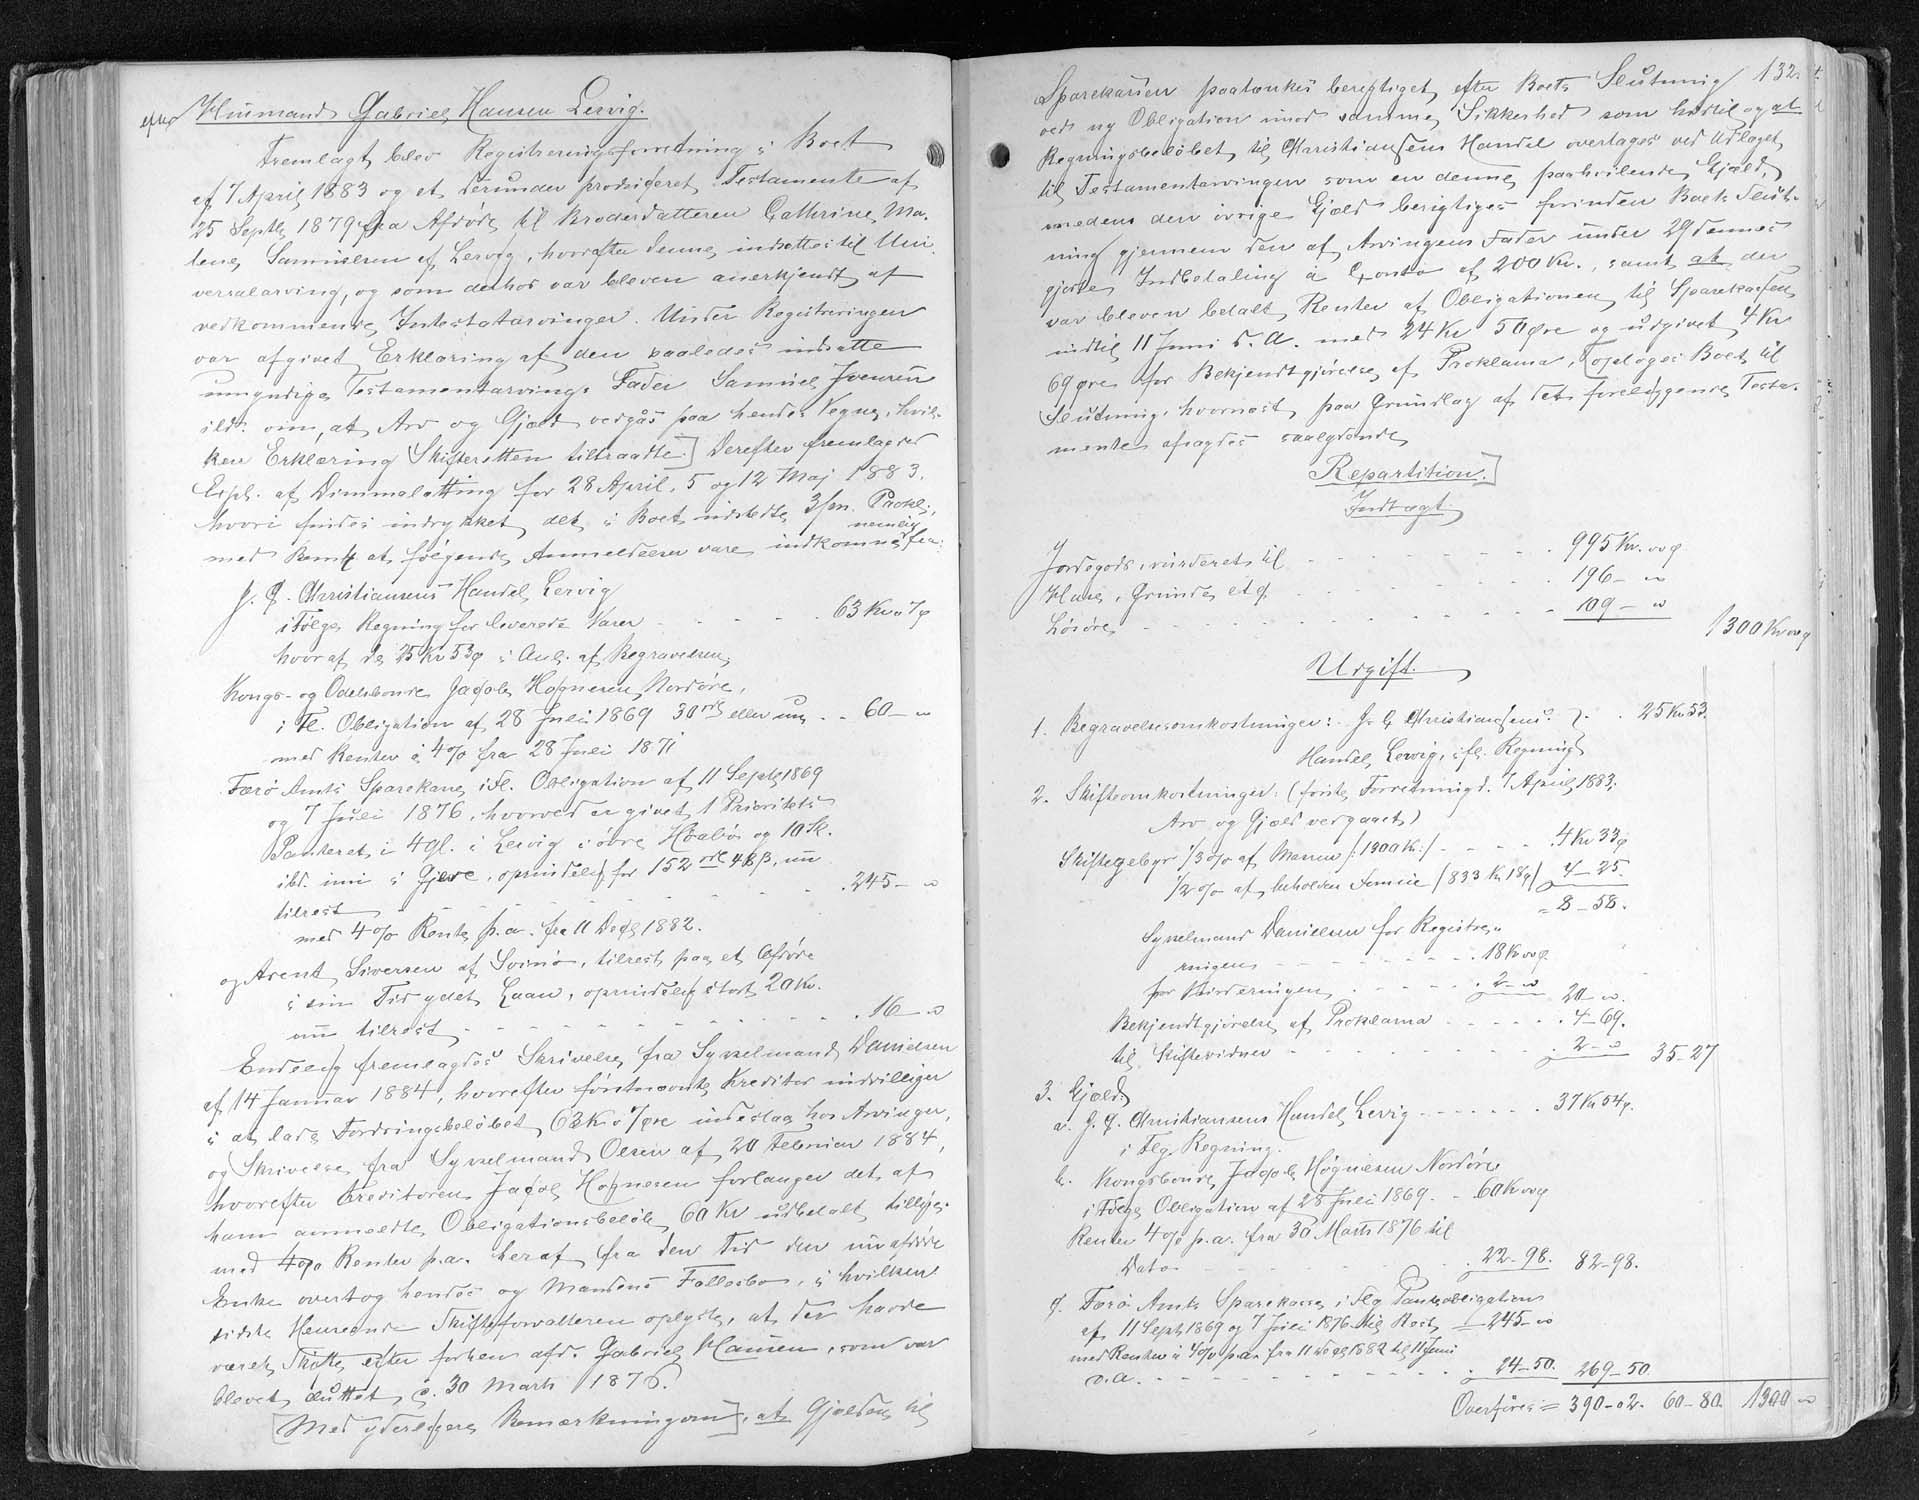 efter Huusmand Gabriel Hansen Lervig.
Fremlagt blev Registreringsforretning i Boet
af 7 April 1883 og et derunder produceret Testamente af
25 Septb 1879 fra Afdøde til Broderdatteren Cathrine Ma-
lene Samuelsen af Lervig, hvorefter denne indsættes til Uni-
versalarving, og som derhos var bleven anerkjendt af
vedkommende Intestatarvinger. Under Registreringen
var afgivet Erklæring af den saaledes indsatte
umyndige Testamentarvings Fader Samuel Joensen
ibd. om, at Arv og Gjæld vedgås paa hendes Vegne, hvil-
ken Erklæring Skifteretten tiltraadte] Derefter fremlagdes
Expl. af Dimmalætting for 28 April, 5 og 12 Maj 1883,
hvori findes indrykket det i Boet udstedte 3/m. Prokl.,
med Bemk at følgende Anmeldelser vare indkomne nemlig fra:
J. C. Christiansens Handel Lervig
i Følge Regning for leverede Varer - - - - . 63 Kr 07 ø
hvoraf de 25 Kr 53 ø i Anl. af Begravelsen,
Kongs- og Odelsbonde Jacob Høgnesen Nordøre,
i Fl. Obligation af 28 Juli 1869 30 rdl eller nu . - 60 - "
med Renter à 4% fra 28 Juli 1871
Færø Amts Sparekasse i Fl. Obligation af 11 Septb 1869
og 7 Juli 1876, hvorved er givet 1 Prioritets
Panteret i 4 gl. i Lervig i øbre Høabø og 10 Sk.
ibd. inni i Gjerde, oprindelig for 152 rdl 48 β, nu
tilrest - - - - - - - . 245 - "
med 4% Rente p.a. fra 11 Decb 1882.
og Arent Siversen af Svinø, tilrest paa et Afdøde
i sin Tid ydet Laan, oprindelig stort 20 Kr.
nu tilrest - - - - - - - - . 16 - "
Endelig fremlagdes Skrivelse fra Sysselmand Danielsen
af 14 Januar 1884, hvorefter førstnævnte Kreditor indvilliger
i at lade Fordringsbeløbet 63 Kr 07 øre indestaa hos Arvingen,
og Skrivelse fra Sysselmand Olsen af 20 Februar 1884,
hvorefter Creditoren Jacob Høgnesen forlanger det af
ham anmeldte Obligationsbeløb 60 Kr udbetalt tillige-
med 4% Renter p.a. heraf fra den Tid den nu afdøde
Enke overtog hendes og Mandens Fællesbo, i hvilken
sidste Henseende Skifteforvalteren oplyste, at der havde
været Skifte efter forhen afd. Gabriel Hansen, som var
blevet sluttet d. 30 Marts 1876.
[Med yderligere Bemærkning om], at Gjælden til
132.
Sparekassen paatænkes berigtiget efter Boets Slutning
ved ny Obligation imod samme Sikkerhed som hidtil og at
Regningsbeløbet til Christiansens Handel overtages ved Udlæget
til Testamentarvingen som en denne paahvilende Gjæld,
medens den øvrige Gjæld berigtiges forinden Boets Slut-
ning gjennem den af Arvingens Fader under 29 dennes
gjorte Indbetaling à Conto af 200 Kr., samt at der
var bleven betalt Renter af Obligationen til Sparekassen
indtil 11 Juni d. A. med 24 Kr 50 Øre og udgivet 4 Kr
69 Øre for Bekjendtgjørelse af Proklama, [optoges Boet til
Slutning, hvornæst paa Grundlag af det foreliggende Testa-
mente afsagdes saalydende
Repartition.]
Indtægt
Jordegods, vurderet til - - - - - . 995 Kr. 00 ø
Huse, Grunde etc. - - - - - . 196 - "
Løsøre - - - - - - - - 109 - "
1300 Kr 00 ø
Udgift.
1. Begravelsesomkostninger: J. C. Christiansens } . . 25 Kr 53.
Handel, Lervig, i fl. Regning
2. Skifteomkostninger: (første Forretning d. 7 April 1883;
Arv og Gjæld vedgaaet)
Skiftegebyr 1/3 % af Massen /: 1300 Kr :/ - - - - . 4 Kr 33 ø
1/2 % af beholden Formue (833 Kr 18 ø) 4 - 25.
= 8 - 58.
Sysselmand Danielsen for Registre-
ringen - - - - - - - - . 18 Kr 00 ø.
for Vurderingen . - - - - . 2 - " 20 - ".
Bekjendtgjørelse af Proklama . - - - - . 4 - 69.
til Skiftevidner - - - - - - - . 2 - " 35 - 27
3. Gjæld.
a. J. C. Christiansens Handel Lervig - - - - - . 37 Kr 54 ø.
i Flg. Regning.
b. Kongsbonde Jacob Høgnesen Nordøre
i Følge Obligation af 28 Juli 1869. - 60 Kr 00 ø
Renter 4% p.a. fra 30 Marts 1876 til
Dato - - - - - - . 22 - 98. 82 - 98.
c. Færø Amts Sparekasse i Flg Panteobligation
af 11 Septb 1869 og 7 Juli 1876 tilg Rest = 245 - "
med Renter à 4% p.a. fra 11 Decb 1882 til 11 Juni
d.A. - - - - - - - . 24 - 50. 269 - 50.
Overføres = 390 - 02. 60 - 80. 1300 "